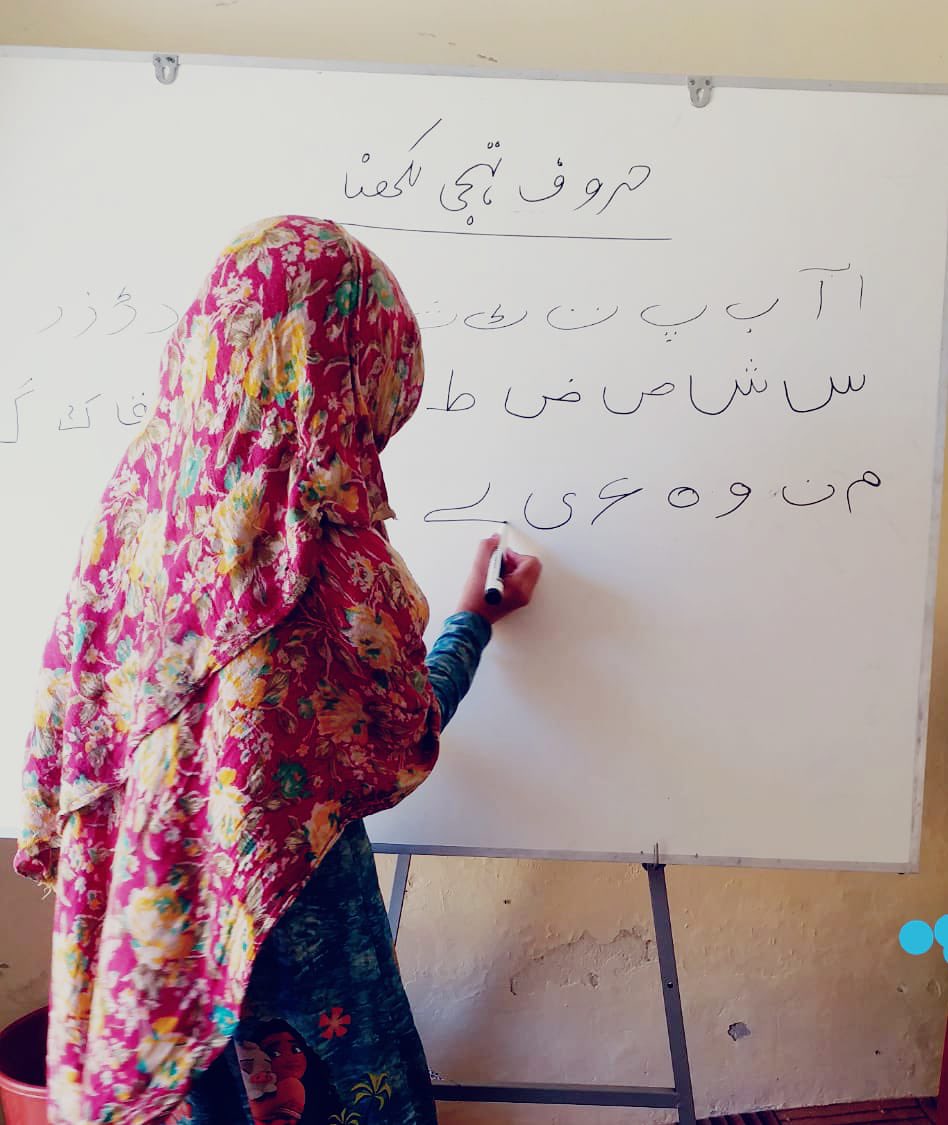 حروف تہجی لکھنا
ا آ ب پ ت ٹ ث د ڑ ز ر
س ش ص ض ط ق ک گ
م ن و ہ ء ی ے